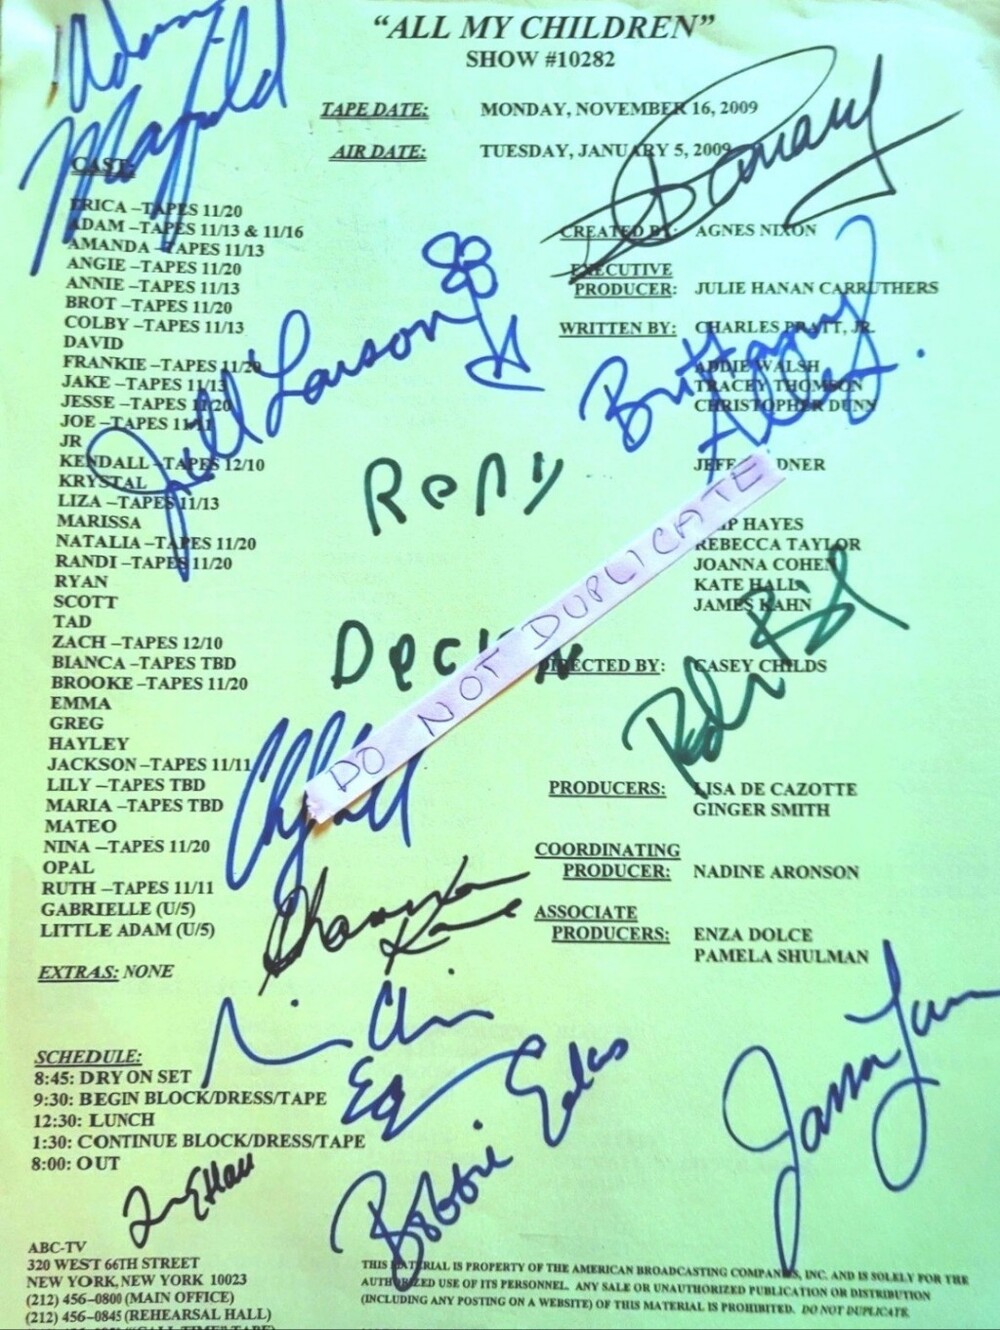 "ALL MY CHILDREN"
SHOW #10282
TAPE DATE: MONDAY, NOVEMBER 16, 2009
AIR DATE: TUESDAY, JANUARY 5, 2009
Adam
Mayfield
CAST:
ERICA –TAPES 11/20
ADAM –TAPES 11/13 & 11/16
AMANDA –TAPES 11/13
ANGIE –TAPES 11/20
ANNIE –TAPES 11/13
BROT –TAPES 11/20
COLBY –TAPES 11/13
DAVID
FRANKIE –TAPES 11/20
JAKE –TAPES 11/13
JESSE –TAPES 11/20
JOE –TAPES 11/11
JR
KENDALL –TAPES 12/10
KRYSTAL
LIZA –TAPES 11/13
MARISSA
NATALIA –TAPES 11/20
RANDI –TAPES 11/20
RYAN
SCOTT
TAD
ZACH –TAPES 12/10
BIANCA –TAPES TBD
BROOKE –TAPES 11/20
EMMA
GREG
HAYLEY
JACKSON –TAPES 11/11
LILY –TAPES TBD
MARIA –TAPES TBD
MATEO
NINA –TAPES 11/20
OPAL
RUTH –TAPES 11/11
GABRIELLE (U/5)
LITTLE ADAM (U/5)
EXTRAS: NONE
SCHEDULE:
8:45: DRY ON SET
9:30: BEGIN BLOCK/DRESS/TAPE
12:30: LUNCH
1:30: CONTINUE BLOCK/DRESS/TAPE
8:00: OUT
CREATED BY: AGNES NIXON
EXECUTIVE
PRODUCER: JULIE HANAN CARRUTHERS
WRITTEN BY: CHARLES PRATT, JR.
ADDIE WALSH
TRACEY THOMSON
CHRISTOPHER DUNN
HAYES
REBECCA TAYLOR
JOANNA COHEN
KATE HALL
JAMES KAHN
DIRECTED BY: CASEY CHILDS
PRODUCERS: LISA DE CAZOTTE
GINGER SMITH
COORDINATING
PRODUCER: NADINE ARONSON
ASSOCIATE
PRODUCERS: ENZA DOLCE
PAMELA SHULMAN
Jill Larson
Brittany
Allen
DO NOT DUPLICATE
Shannon
Kane
Bobbie Eakes
ABC-TV
320 WEST 66TH STREET
NEW YORK, NEW YORK 10023
(212) 456–0800 (MAIN OFFICE)
(212) 456–0845 (REHEARSAL HALL)
THIS MATERIAL IS PROPERTY OF THE AMERICAN BROADCASTING COMPANIES, INC. AND IS SOLELY FOR THE
AUTHORIZED USE OF ITS PERSONNEL. ANY SALE OR UNAUTHORIZED PUBLICATION OR DISTRIBUTION
(INCLUDING ANY POSTING ON A WEBSITE) OF THIS MATERIAL IS PROHIBITED. DO NOT DUPLICATE.